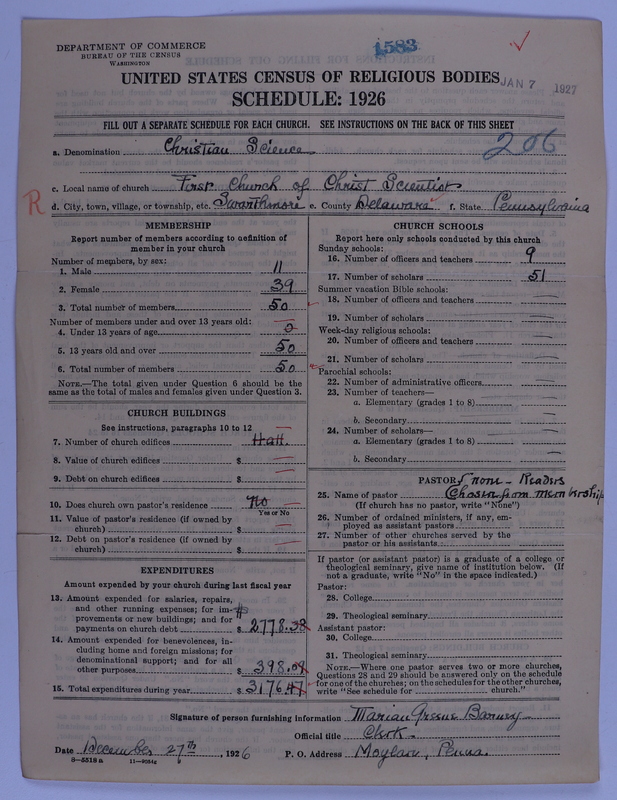 DEPARTMENT OF COMMERCE
BUREAU OF THE CENSUS
WASHINGTON
1583
UNITED STATES CENSUS OF RELIGIOUS BODIES
JAN 7 1927
SCHEDULE: 1926
FILL OUT A SEPARATE SCHEDULE FOR EACH CHURCH. SEE INSTRUCTIONS ON THE BACK OF THIS SHEET
206
a. Denomination Christian Science
c. Local name of church First Church of Christ Scientist
R
d. City, town, village, or township, etc. Swarthmore e. County Delaware f. State Pennsylvania
MEMBERSHIP
Report number of members according to definition of
member in your church
Number of members, by sex:
1. Male 11
2. Female 39
3. Total number of members 50
Number of members under and over 13 years old:
4. Under 13 years of age 0
5. 13 years old and over 50
6. Total number of members 50
NOTE.—The total given under Question 6 should be the
same as the total of males and females given under Question 3.
CHURCH BUILDINGS
See instructions, paragraphs 10 to 12
7. Number of church edifices Hall
8. Value of church edifices $ —
9. Debt on church edifices $ —
10. Does church own pastor's residence No
Yes or No
11. Value of pastor's residence (if owned by
church) $ —
12. Debt on pastor's residence (if owned by
church) $ —
EXPENDITURES
Amount expended by your church during last fiscal year
13. Amount expended for salaries, repairs,
and other running expenses; for im-
provements or new buildings; and for
payments on church debt $ 2778.38
14. Amount expended for benevolences, in-
cluding home and foreign missions; for
denominational support; and for all
other purposes $ 398.09
15. Total expenditures during year $ 3176.47
CHURCH SCHOOLS
Report here only schools conducted by this church
Sunday schools:
16. Number of officers and teachers 9
17. Number of scholars 51
Summer vacation Bible schools:
18. Number of officers and teachers —
19. Number of scholars —
Week-day religious schools:
20. Number of officers and teachers —
21. Number of scholars —
Parochial schools:
22. Number of administrative officers —
23. Number of teachers—
a. Elementary (grades 1 to 8) —
b. Secondary —
24. Number of scholars—
a. Elementary (grades 1 to 8) —
b. Secondary —
PASTOR none - Readers
25. Name of pastor Chosen from membership
(If church has no pastor, write "None")
26. Number of ordained ministers, if any, em-
ployed as assistant pastors
27. Number of other churches served by the
pastor or his assistants
If pastor (or assistant pastor) is a graduate of a college or
theological seminary, give name of institution below. (If
not a graduate, write "No" in the space indicated.)
Pastor:
28. College
29. Theological seminary
Assistant pastor:
30. College
31. Theological seminary
NOTE.—Where one pastor serves two or more churches,
Questions 28 and 29 should be answered only on the schedule
for one of the churches; on the schedules for the other churches,
write "See schedule for church."
Signature of person furnishing information Marian Greene Barney
Official title Clerk
Date December 27th, 1926 P. O. Address Moylan, Penna.
8—5518a 11—9084c